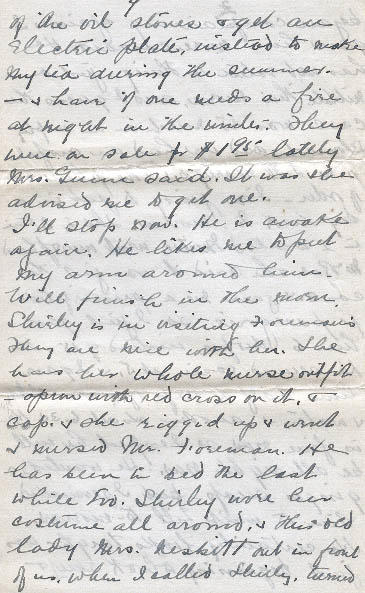 of the oil stoves & get an
Electric plate, instead to make
my tea during the summer.
- & have if one needs a fire
at night in the winter. They
were on sale for $1.95 lately
Mrs. said. It was she
advised me to get one.
I'll stop now. He is awake
again. He likes me to put
my arm around him.
Will finish in the morn.
Shirley is in visiting Foreman's
They are nice with her. She
has her whole nurse outfit
- apron with red cross on it, &
cap. & she rigged up & went
& nursed Mr. Foreman. He
has been in bed the last
while too. Shirley wore her
costume all around, & this old
lady Mrs. Neskitt out in front
of us, when I called Shirley, turned